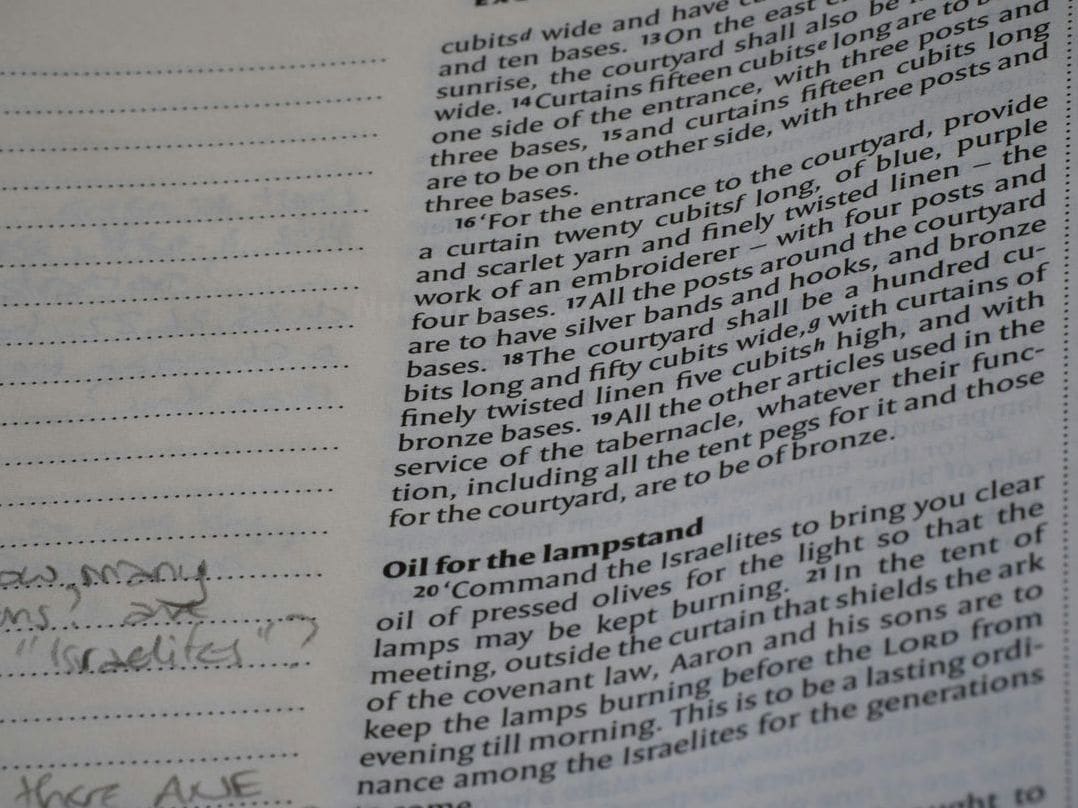 cubitsd wide and have
and ten bases. 13On the east
sunrise, the courtyard shall also be
wide. 14Curtains fifteen cubitse long are to
one side of the entrance, with three posts and
three bases, 15and curtains fifteen cubits long
are to be on the other side, with three posts and
three bases.
16‘For the entrance to the courtyard, provide
a curtain twenty cubitsf long, of blue, purple
and scarlet yarn and finely twisted linen – the
work of an embroiderer – with four posts and
four bases. 17All the posts around the courtyard
are to have silver bands and hooks, and bronze
bases. 18The courtyard shall be a hundred cu-
bits long and fifty cubits wide,g with curtains of
finely twisted linen five cubitsh high, and with
bronze bases. 19All the other articles used in the
service of the tabernacle, whatever their func-
tion, including all the tent pegs for it and those
for the courtyard, are to be of bronze.
Oil for the lampstand
20‘Command the Israelites to bring you clear
oil of pressed olives for the light so that the
lamps may be kept burning. 21In the tent of
meeting, outside the curtain that shields the ark
of the covenant law, Aaron and his sons are to
keep the lamps burning before the LORD from
evening till morning. This is to be a lasting ordi-
nance among the Israelites for the generations
to
many
are
"Israelites"?
there ANE